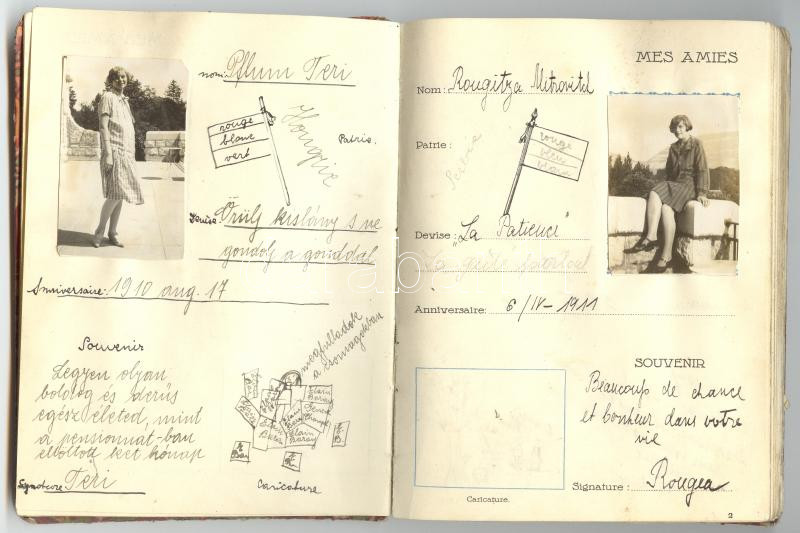 nom: Pflum Teri
rouge
blanc
vert
Hongrie
Patrie.
Devise: Örülj kislány s ne
gondolj a gonddal
Anniversaire: 1910 aug. 17
Souvenir
Legyen olyan
boldog és derüs
egész életed, mint
a pensionnat-ban
eltöltött két hónap
Signature Teri
megfulladok
a csomagokban
Caricature
MES AMIES
Nom: Rougitza Mitrovitch
Patrie: Serbie
rouge
bleu
blanc
Devise: "La Patience"
La gaîté partout
Anniversaire: 6/IV-1911
SOUVENIR
Beaucoup de chance
et bonheur dans votre
vie
Signature: Rougea
Caricature.
2